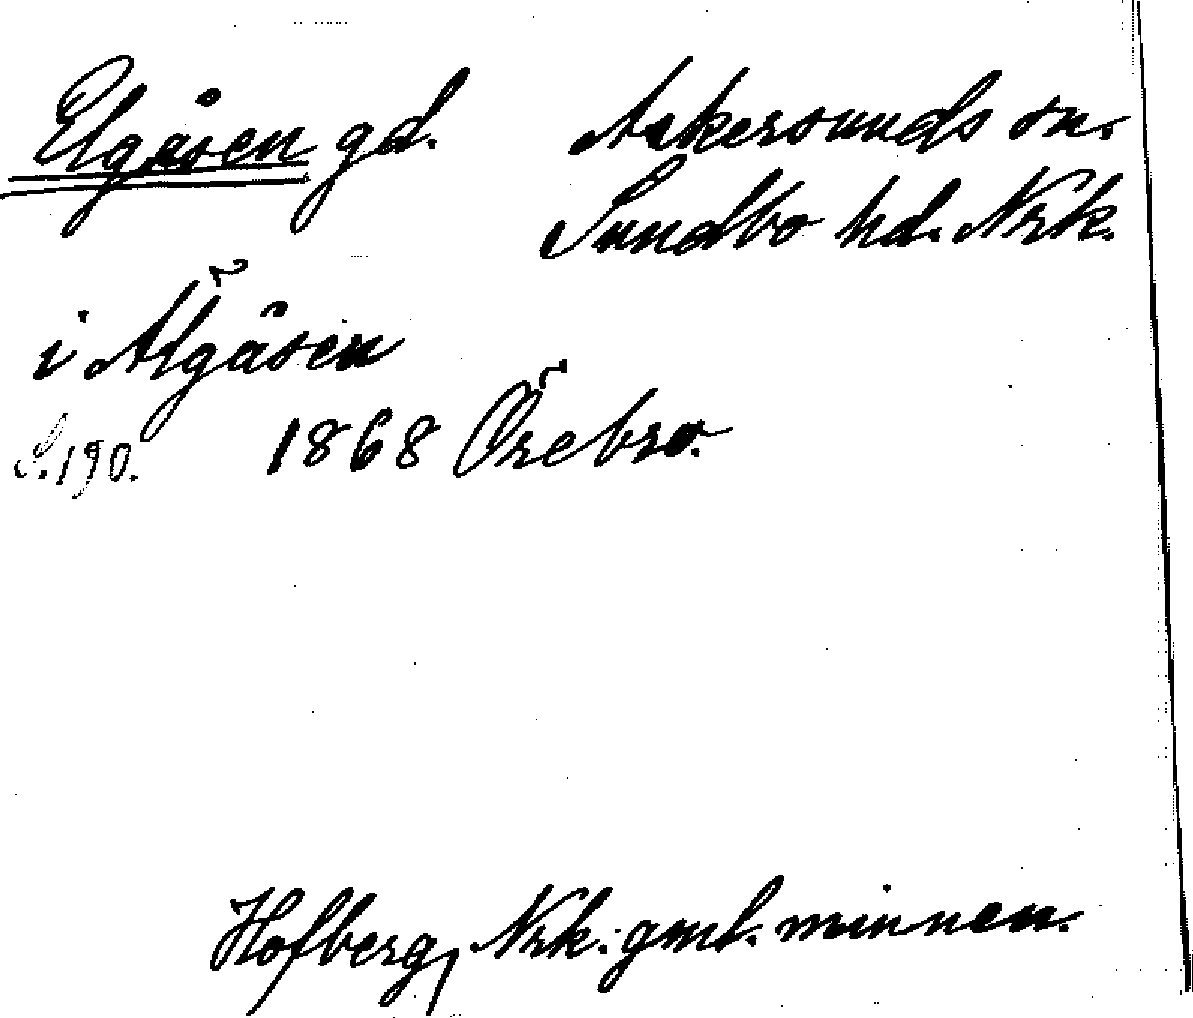 Elgåsen gd. Askersunds sn.
Sundbo hd. Nrk.
i Älgåsen
S. 190. 1868 Örebro.
Hofberg, Nrk: gml. minnen.